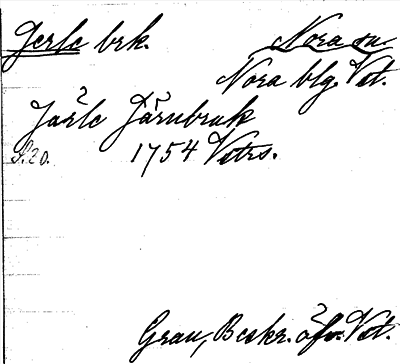 Jerle brk. Nora sn.
Nora blg. Vet.
Jarle Järnbruk
S. 20. 1754 Vetrs.
Grau, Beskr. öfv. Vet.